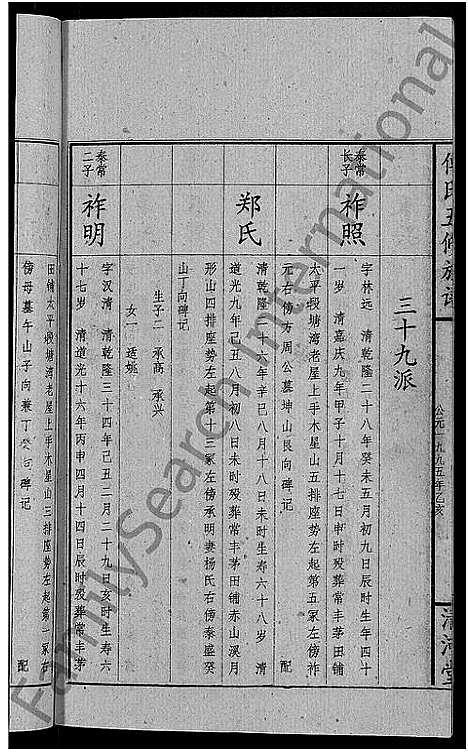 三十九派
泰常
长子
祚照
字林远 清乾隆二十八年癸未五月初九日辰时生年四十
一岁 清嘉庆九年甲子十月十七日申时殁葬常丰茅田铺
太平段塘湾老屋上手木星山五排座势左起第五冢左傍祚
元右傍方周公墓坤山艮向碑记 配
郑氏
清乾隆二十六年辛巳八月十八日未时生寿六十八岁 清
道光九年己丑八月初八日未时殁葬常丰茅田铺赤山溪月
形山四排座势左起第十三冢左傍承明妻杨氏右傍泰盛癸
山丁向碑记
生子二 承高 承兴
女一 适姚
泰常
二子
祚明
字汉清 清乾隆三十四年己丑二月二十九日亥时生寿六
十七岁 清道光十六年丙申四月十四日辰时殁葬常丰茅
田铺太平段塘湾老屋上手木星山三排座势左起第一冢右
傍母墓午山子向兼丁癸 碑记 配
氏五修族谱
公元一九九五年乙亥
清河堂
FamilySearch International